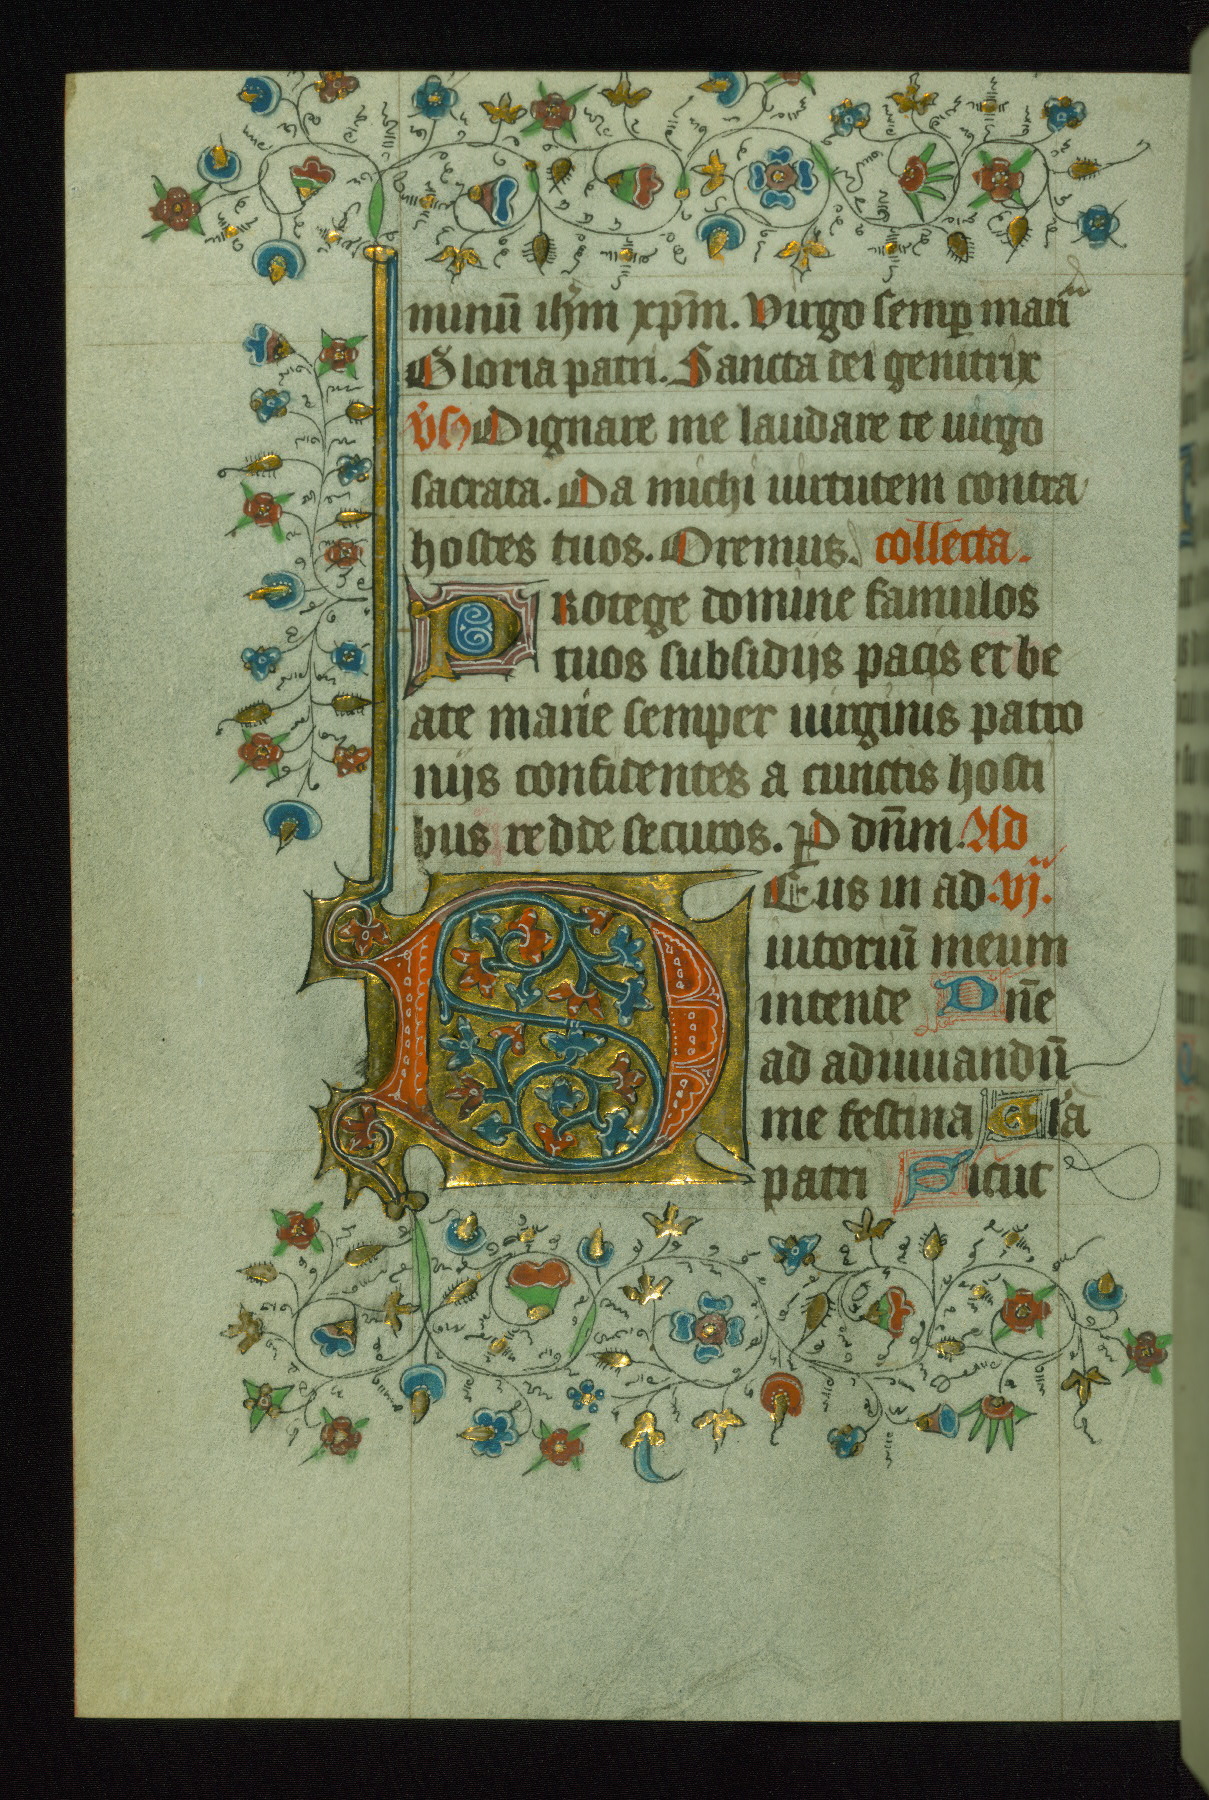 minū ihm̄ xp̄m. Virgo semp̄ mari
Gloria patri. Sancta dei genitrix
v̄s Dignare me laudare te uirgo
sacrata. Da michi uirtutem contra
hostes tuos. Oremus. collecta.
Protege domine famulos
tuos subsidijs pacis et be
ate marie semper uirginis patro
nijs confidentes a cunctis hosti
bus redde securos. P dn̄m. Ad
Deus in ad .vj.
iutoriū meum
intende Dn̄e
ad adiuuandū
me festina Gl̄a
patri Sicut